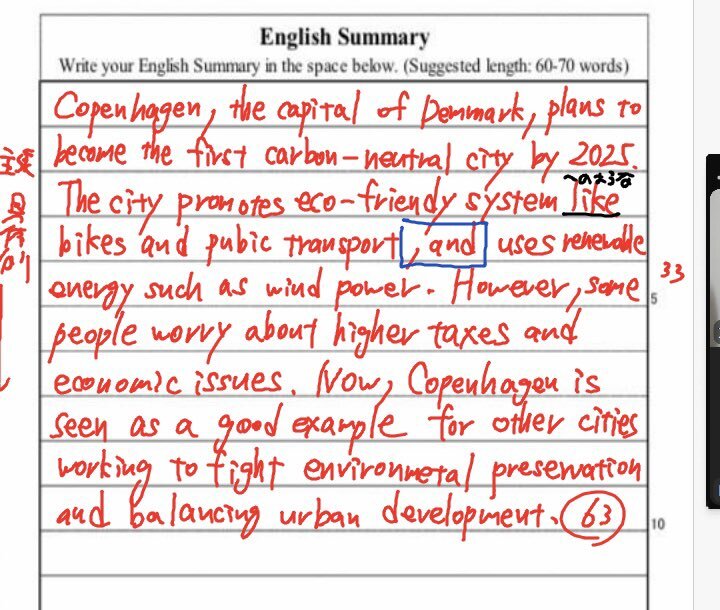 English Summary
Write your English Summary in the space below. (Suggested length: 60-70 words)
Copenhagen, the capital of Denmark, plans to
become the first carbon-neutral city by 2025.
への対策
The city promotes eco-friendly system like
bikes and pubic transport, and uses renewable
energy such as wind power. However, some
33
5
people worry about higher taxes and
economic issues. Now, Copenhagen is
seen as a good example for other cities
working to fight environmetal preservation
and balancing urban development. 63
10
具体的